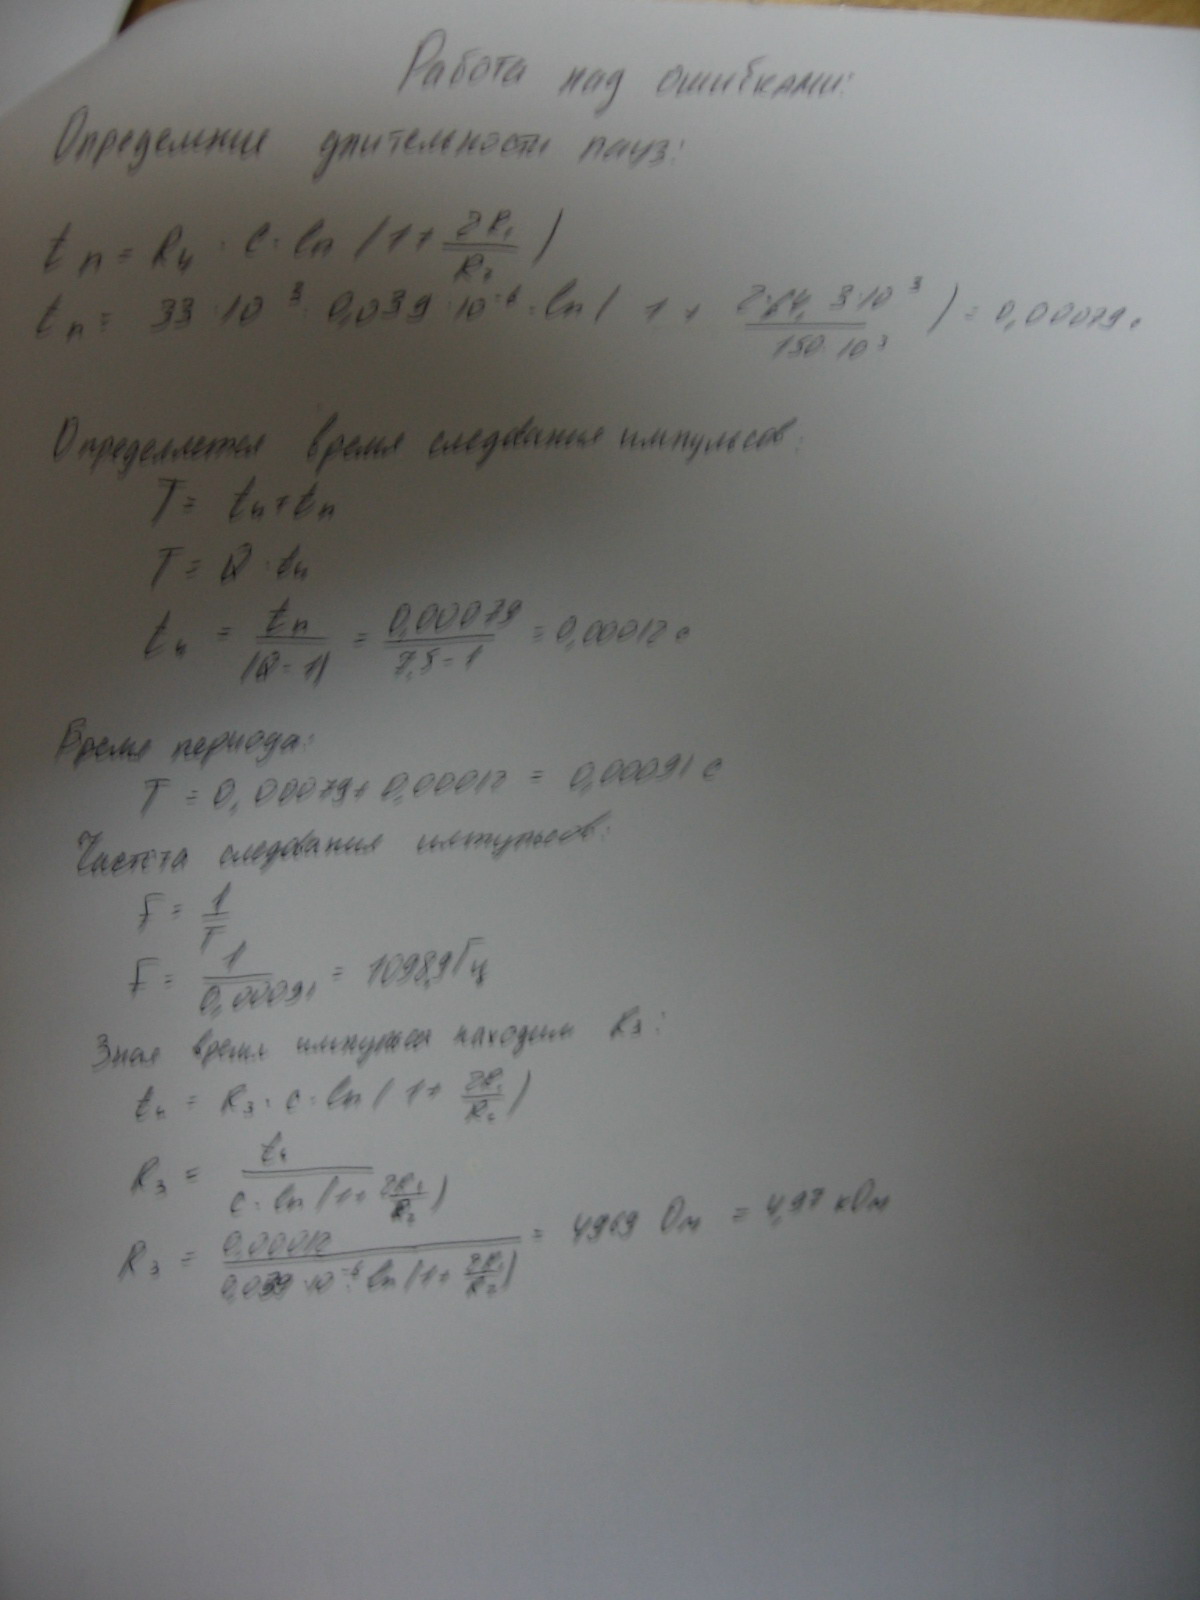 Работа над ошибками:
Определение длительности пауз:
tп = R4 · C · ln(1+ 2R1/R2)
tп = 33·10^3 · 0,039·10^-6 · ln(1 + 2·64,3·10^3/150·10^3) = 0,00079 с
Определяется время следования импульсов:
T = tи + tп
T = Q · tи
tи = tп/(Q-1) = 0,00079/7,5-1 = 0,00012 с
Время периода:
T = 0,00079 + 0,00012 = 0,00091 с
Частота следования импульсов:
F = 1/T
F = 1/0,00091 = 1098,9 Гц
Зная время импульса находим R3:
tи = R3 · C · ln(1+ 2R1/R2)
R3 = tи/C · ln(1+ 2R1/R2)
R3 = 0,00012/0,039·10^-6 · ln(1+ 2R1/R2) = 4969 Ом = 4,97 кОм